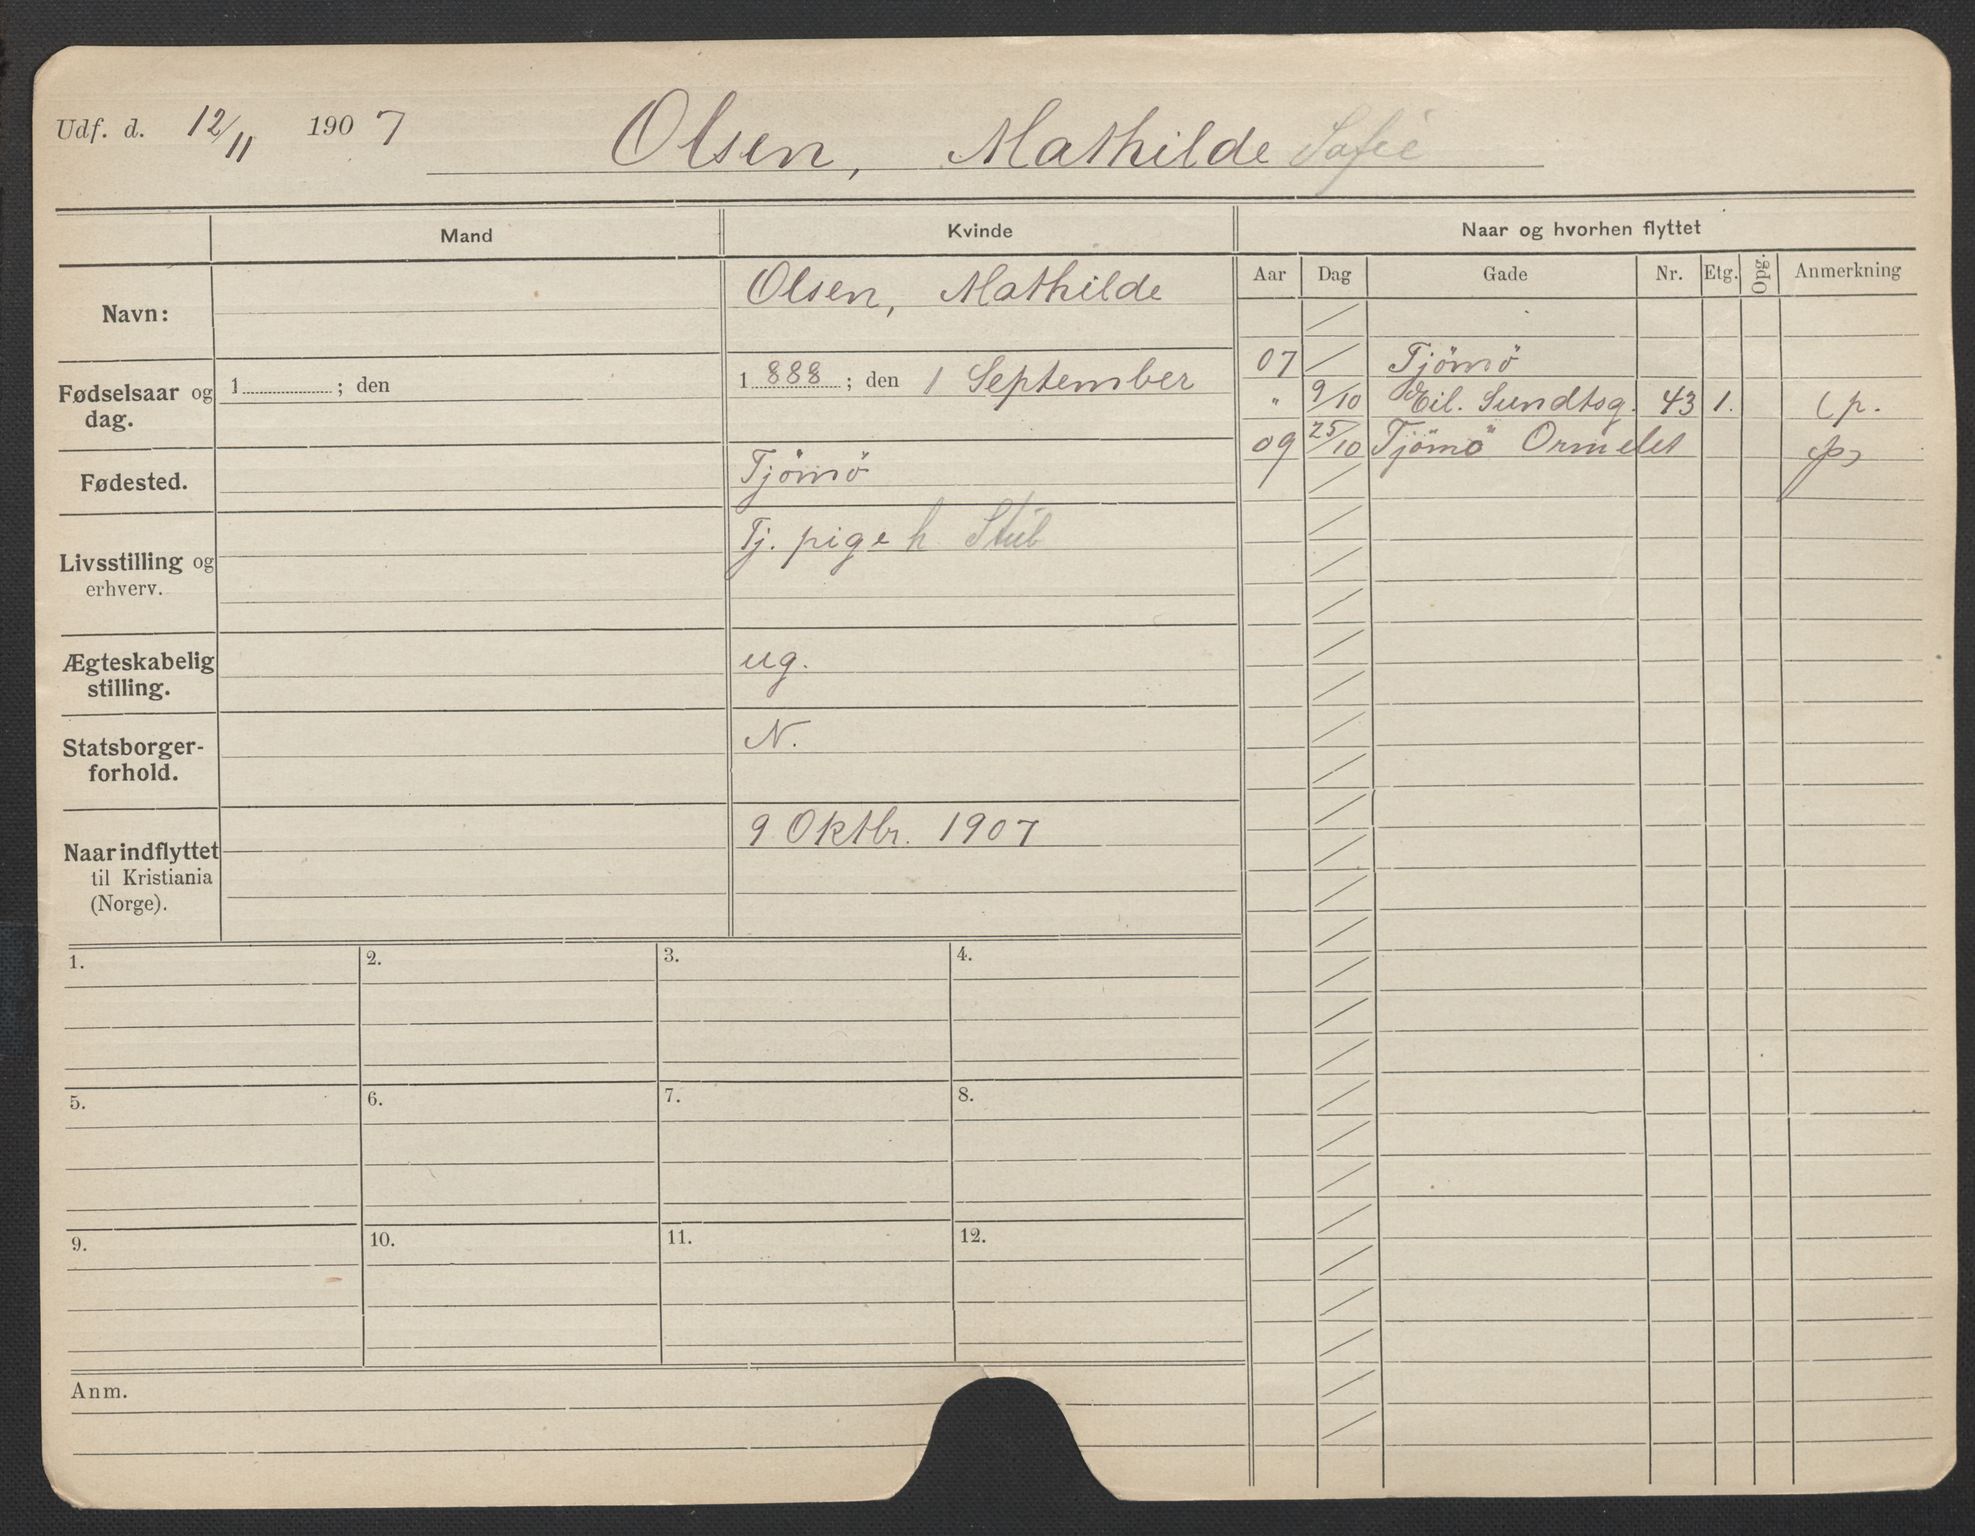 Udf. d. 12/11 1907 Olsen, Mathilde Sofie
Mand Kvinde Naar og hvorhen flyttet
Aar Dag Gade Nr. Etg. Opg. Anmerkning
Navn: Olsen, Mathilde
Fødselsaar og dag. 1 ; den 1888 ; den 1 September
Fødested. Tjömö
Livsstilling og erhverv. Tj. pige h Stub
Ægteskabelig stilling. ug.
Statsborger-forhold. N.
Naar indflyttet til Kristiania (Norge). 9 Oktbr. 1907
07 / Tjömö
" 9/10 Eil. Sundtsg. 43 1. (p.
09 25/10 Tjömö Ormelet (p)
1. 2. 3. 4.
5. 6. 7. 8.
9. 10. 11. 12.
Anm.